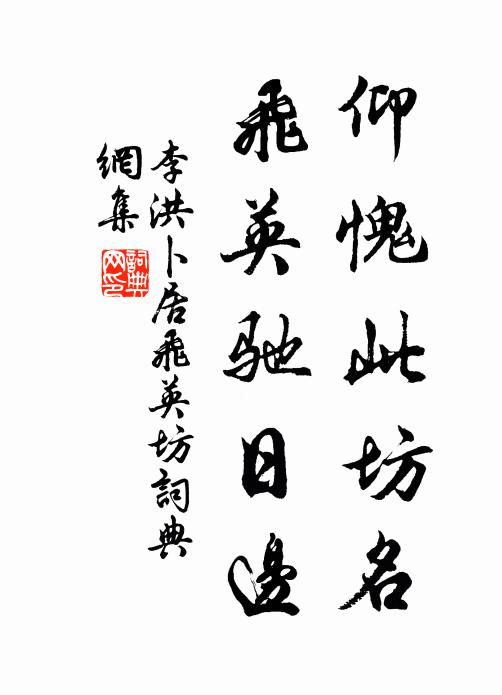 仰愧此坊名
飛英馳日邊
李洪卜居飛英坊詞典
網集
詞典
网印